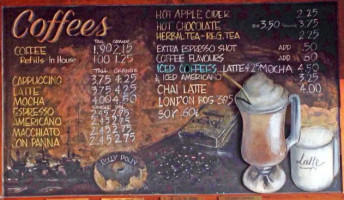 Coffees
TALL GRANDE
COFFEE 1.90 2.15
Refills In House 1.00 1.25
TALL GRANDE
CAPPUCCINO 3.75 4.25
LATTE 3.75 4.25
MOCHA 4.00 4.50
ESPRESSO
AMERICANO 2.45 2.75
MACCHIATO 2.45 2.75
CON PANNA 2.45 2.75
HOT APPLE CIDER 2.25
HOT CHOCOLATE 3.50 3.75
HERBAL TEA - REG. TEA 2.25
EXTRA ESPRESSO SHOT ADD .50
COFFEE FLAVOURS ADD .50
ICED COFFEES LATTE 4.25 MOCHA 4.50
ICED AMERICANO 3.25
CHAI LATTE 4.00
LONDON FOG
SOY .60¢
ROLLY POLLY
Latte